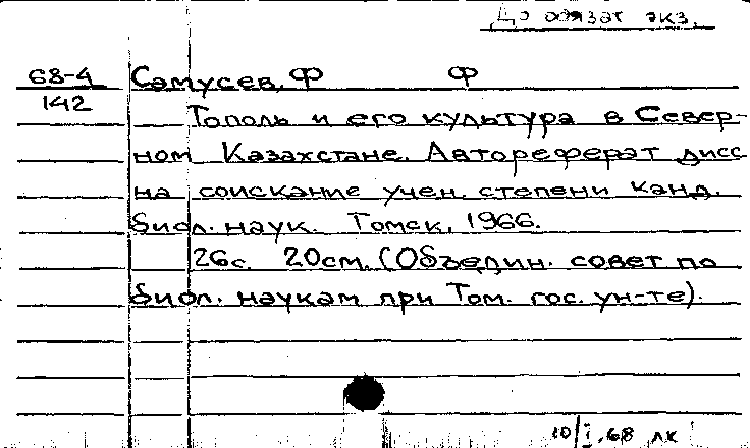 До обязат экз.
68-4 Самусев, Ф Ф
142
Тополь и его культура в Север-
ном Казахстане. Автореферат дисс
на соискание учен. степени канд.
биол. наук. Томск, 1966.
26с. 20см. (Объедин. совет по
биол. наукам при Том. гос. ун-те).
10/I.68 лк